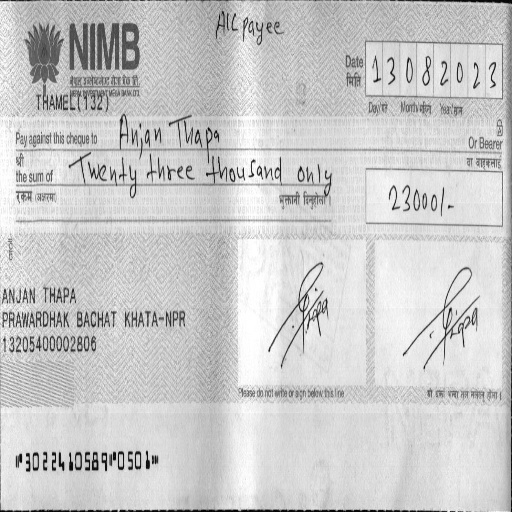 A/C payee
NIMB
नेपाल इन्भेष्टमेन्ट मेगा बैंक लि.
NEPAL INVESTMENT MEGA BANK LTD.
THAMEL(132)
Date
मिति
13082023
Day/गते Month/महिना Year/साल
Pay against this cheque to Anjan Thapa
Or Bearer
श्री
वा वाहकलाई
the sum of Twenty three thousand only
रकम (अक्षरमा)
भुक्तानी दिनुहोला ।
23000/-
ANJAN THAPA
PRAWARDHAK BACHAT KHATA-NPR
13205400002806
Please do not write or sign below this line
⑈30224⑆0589⑈050⑆⑈